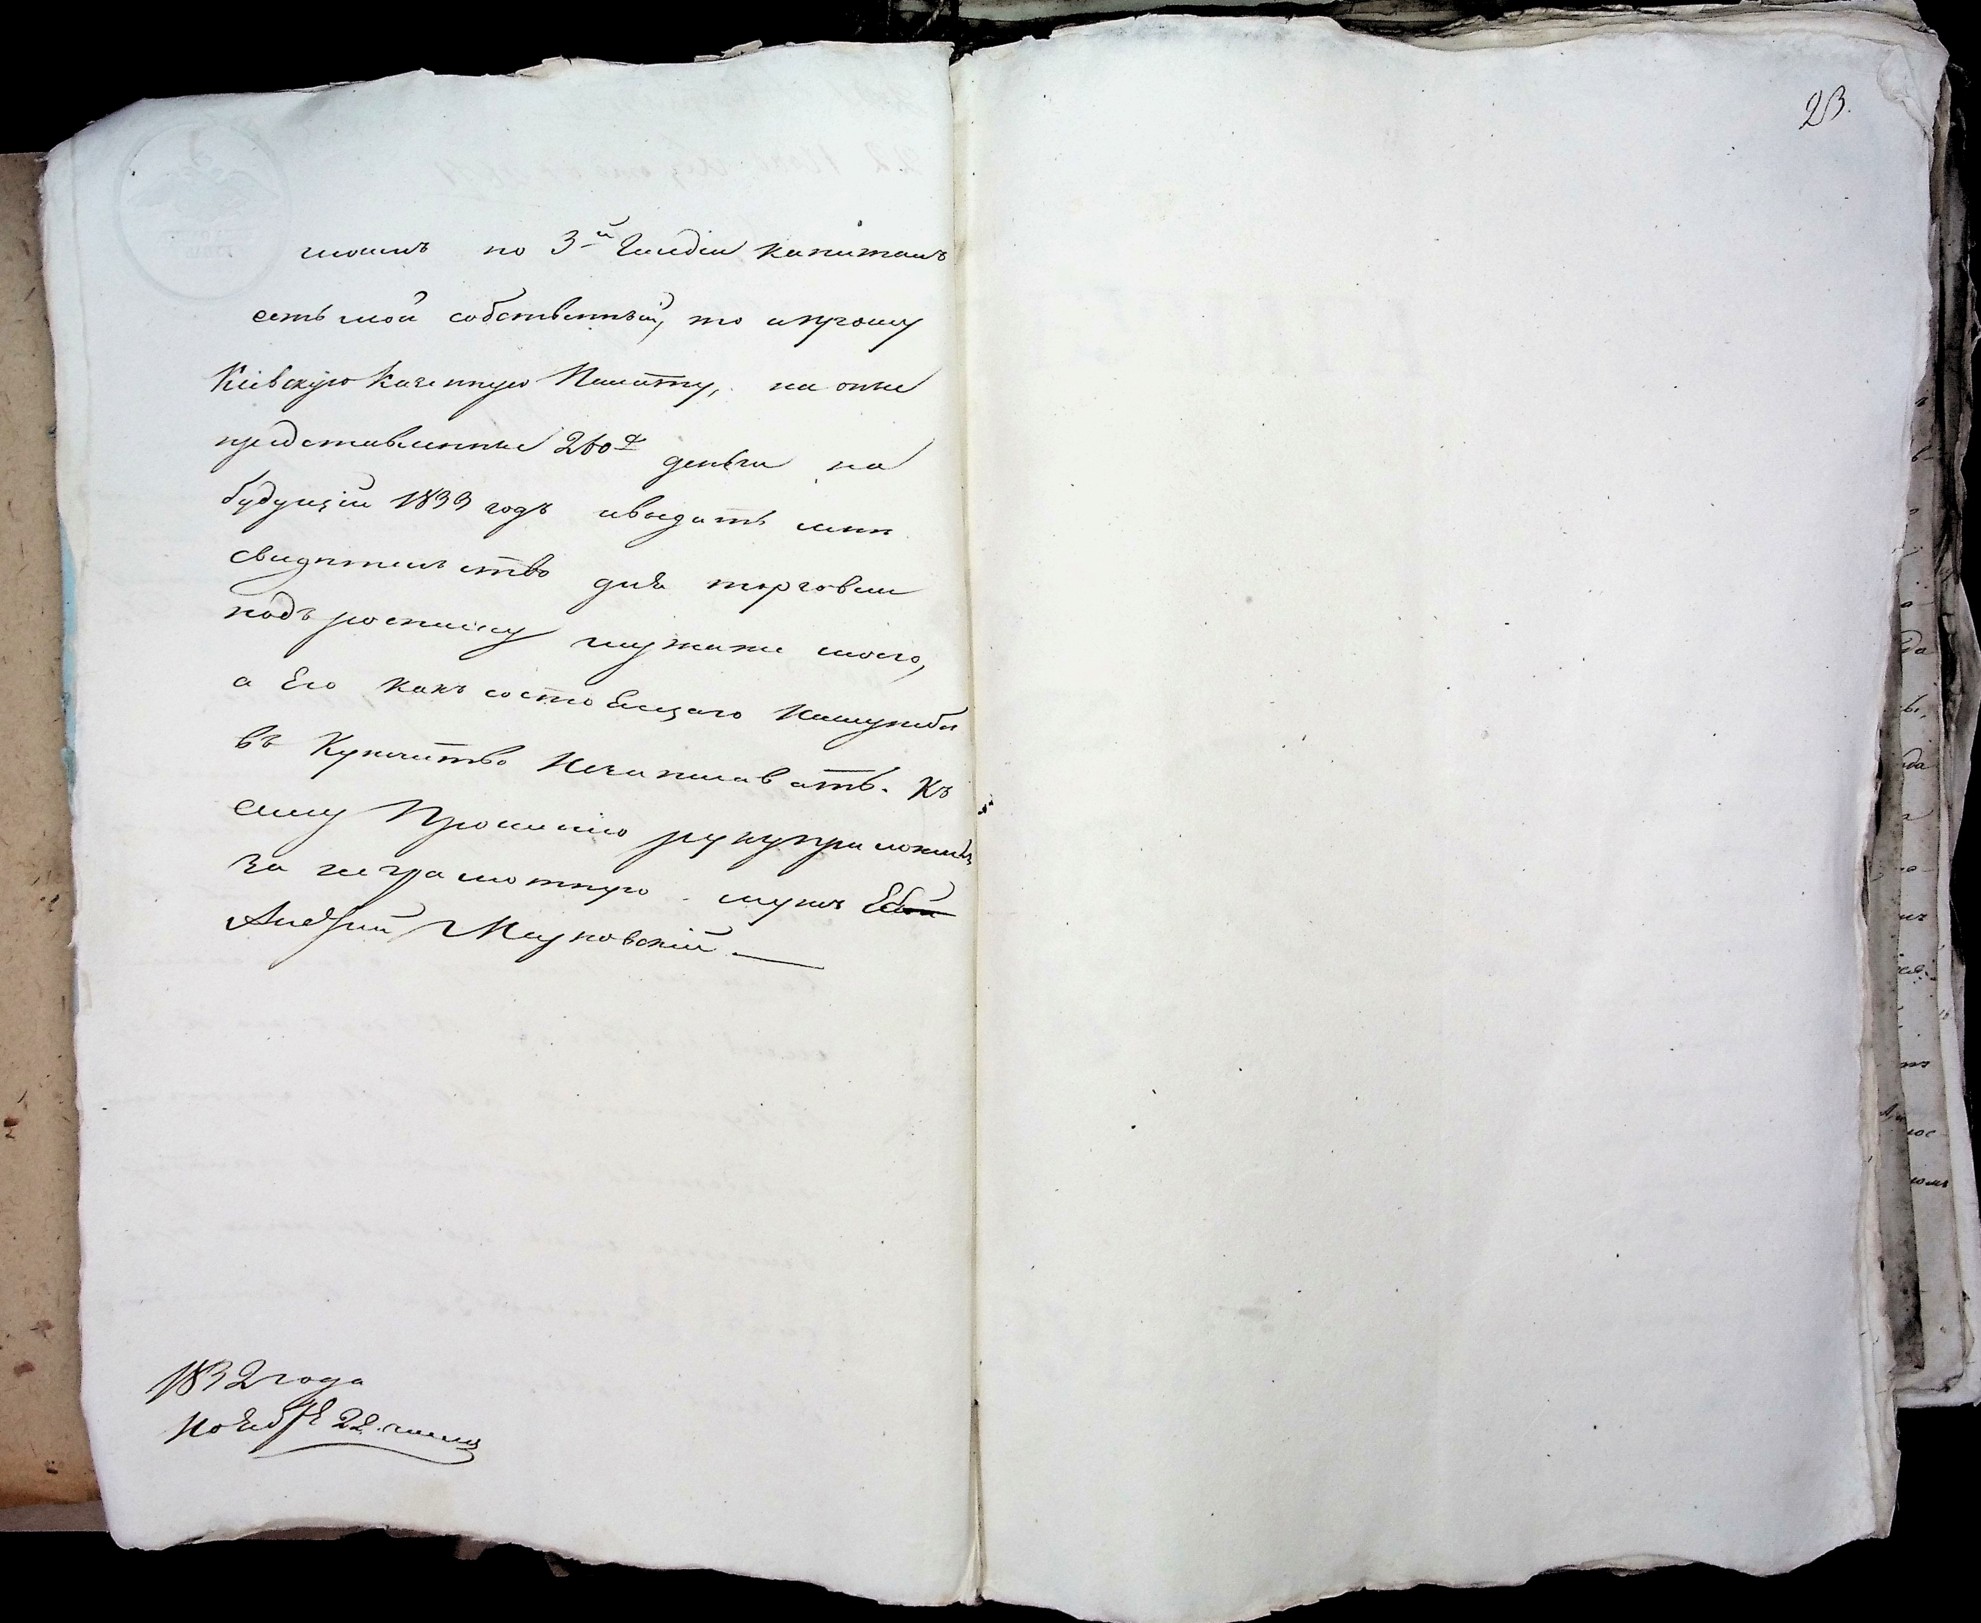 23.
по 3й Гилдіи капиталъ
есть мой собственный, то и прошу
Кіевскую Казенную Палату, на оные
представленные 260 деньги на
будущій 1833 годъ и выдать мнѣ
свидѣтельство для торговли
подъ росписку мужа же моего,
а Его какъ состоящаго
въ Купечество Незаписавать. Къ
сему Прошению руку приложилъ
за неграмотную мужъ Ея
Андрій
1832 года
Ноября 22 числа